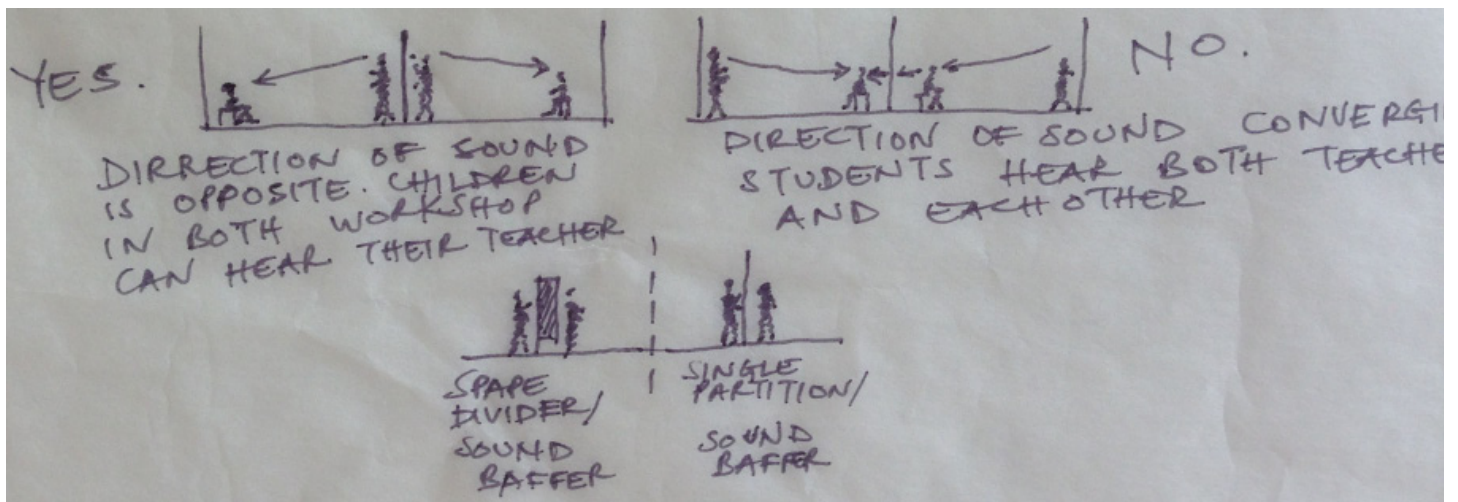 YES.
DIRRECTION OF SOUND
IS OPPOSITE. CHILDREN
IN BOTH WORKSHOP
CAN HEAR THEIR TEACHER
NO.
DIRECTION OF SOUND CONVERGI
STUDENTS HEAR BOTH TEACHE
AND EACH OTHER
SPAPE
DIVIDER/
SOUND
BAFFER
SINGLE
PARTITION/
SOUND
BAFFER